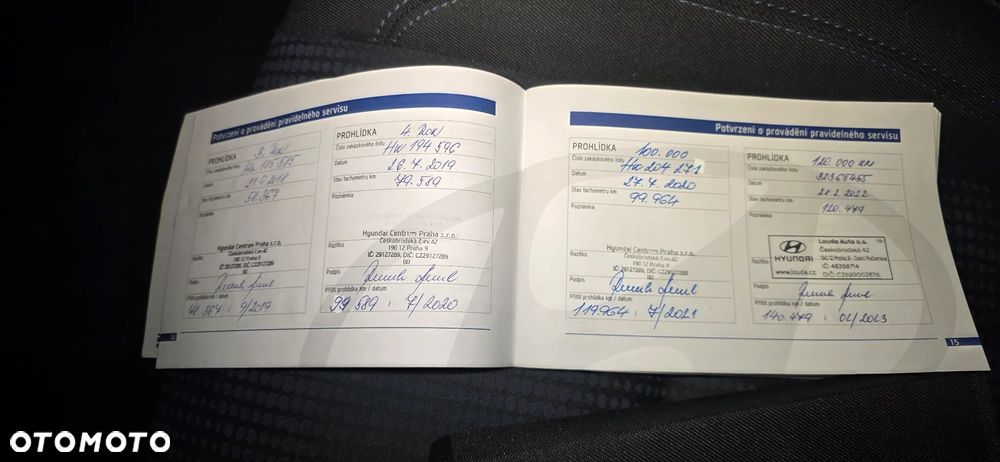 Potvrzení o provádění pravidelného servisu
PROHLÍDKA 3. ROK
Číslo zakázkového listu
Datum
Stav tachometru km 58.367
Poznámka
Hyundai Centrum Praha s.r.o.
Českobrodská č.ev.42
190 12 Praha 9
Razítko IČ: 29127289, DIČ: CZ29127289
(6)
Podpis
Příští prohlídka km / datum
9/2019
PROHLÍDKA 4. ROK
Číslo zakázkového listu HW 194 596
Datum 26. 7. 2019
Stav tachometru km 79.589
Poznámka
Hyundai Centrum Praha s.r.o.
Českobrodská č.ev.42
190 12 Praha 9
Razítko IČ: 29127289, DIČ: CZ29127289
(6)
Podpis
Příští prohlídka km / datum
99.589 7/2020
Potvrzení o provádění pravidelného servisu
PROHLÍDKA 100.000
Číslo zakázkového listu HW 204 271
Datum 27. 7. 2020
Stav tachometru km 99.964
Poznámka
Hyundai Centrum Praha s.r.o.
Českobrodská č.ev.42
190 12 Praha 9
Razítko IČ: 29127289, DIČ: CZ29127289
(6)
Podpis
Příští prohlídka km / datum
119.964 7/2021
PROHLÍDKA 120.000 KM
Číslo zakázkového listu 32365465
Datum 21. 2. 2022
Stav tachometru km 120.479
Poznámka
Louda Auto a.s.
Českobrodská 42
190 12 Praha 9 - Dolní Počernice
Razítko HYUNDAI IČ: 48358714
www.louda.cz DIČ: CZ699002678
Podpis
Příští prohlídka km / datum
140.479 02/2023
15
OTOMOTO